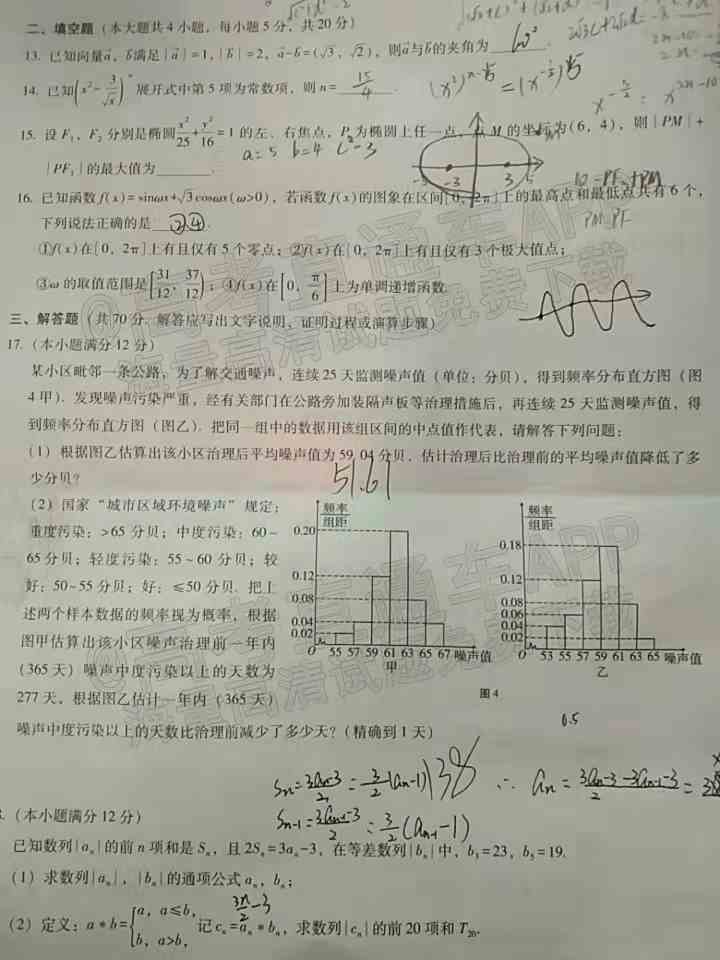 二、填空题（本大题共 4 小题，每小题 5 分，共 20 分）
13. 已知向量a，b满足|a|=1，|b|=2，a-b=(√3，√2)，则a与b的夹角为 60°
14. 已知(x²-3/√x)ⁿ展开式中第 5 项为常数项，则 n= 15/4 .
15. 设 F₁，F₂ 分别是椭圆x²/25+y²/16=1 的左、右焦点，P 为椭圆上任一点，点 M 的坐标为(6，4)，则 |PM|+
a=5 b=4 c²-3
|PF₁| 的最大值为 .
-5 -3 3 5
16. 已知函数 f(x)=sinωx+√3cosωx(ω>0)，若函数 f(x)的图象在区间[0，2π]上的最高点和最低点共有 6 个，
下列说法正确的是 ②④ .
①f(x)在[0，2π]上有且仅有 5 个零点；②f(x)在[0，2π]上有且仅有 3 个极大值点；
③ω 的取值范围是[31/12，37/12)；④f(x)在[0，π/6]上为单调递增函数.
三、解答题（共 70 分. 解答应写出文字说明、证明过程或演算步骤）
17.（本小题满分 12 分）
某小区毗邻一条公路，为了解交通噪声，连续 25 天监测噪声值（单位：分贝），得到频率分布直方图（图
4 甲）. 发现噪声污染严重，经有关部门在公路旁加装隔声板等治理措施后，再连续 25 天监测噪声值，得
到频率分布直方图（图乙）. 把同一组中的数据用该组区间的中点值作代表，请解答下列问题：
（1）根据图乙估算出该小区治理后平均噪声值为 59.04 分贝，估计治理后比治理前的平均噪声值降低了多
少分贝？
51.61
（2）国家“城市区域环境噪声”规定：
重度污染：>65 分贝；中度污染：60~
65 分贝；轻度污染：55~60 分贝；较
好：50~55 分贝；好：≤50 分贝. 把上
述两个样本数据的频率视为概率，根据
图甲估算出该小区噪声治理前一年内
（365 天）噪声中度污染以上的天数为
277 天，根据图乙估计一年内（365 天）
噪声中度污染以上的天数比治理前减少了多少天？（精确到 1 天）
频率
组距
0.20
0.12
0.08
0.04
0.02
O 55 57 59 61 63 65 67 噪声值
甲
频率
组距
0.18
0.12
0.08
0.06
0.04
0.02
O 53 55 57 59 61 63 65 噪声值
乙
图 4
0.5
138
Sn=3an-3/2=3/2(an-1)
Sn-1=3an-1-3/2=3/2(an-1-1)
（本小题满分 12 分）
已知数列{aₙ}的前 n 项和是 Sₙ，且 2Sₙ=3aₙ-3，在等差数列{bₙ}中，b₃=23，b₅=19.
（1）求数列{aₙ}，{bₙ}的通项公式 aₙ，bₙ；
（2）定义：a*b={a，a≤b，b，a>b，记 cₙ=aₙ*bₙ，求数列{cₙ}的前 20 项和 T₂₀.